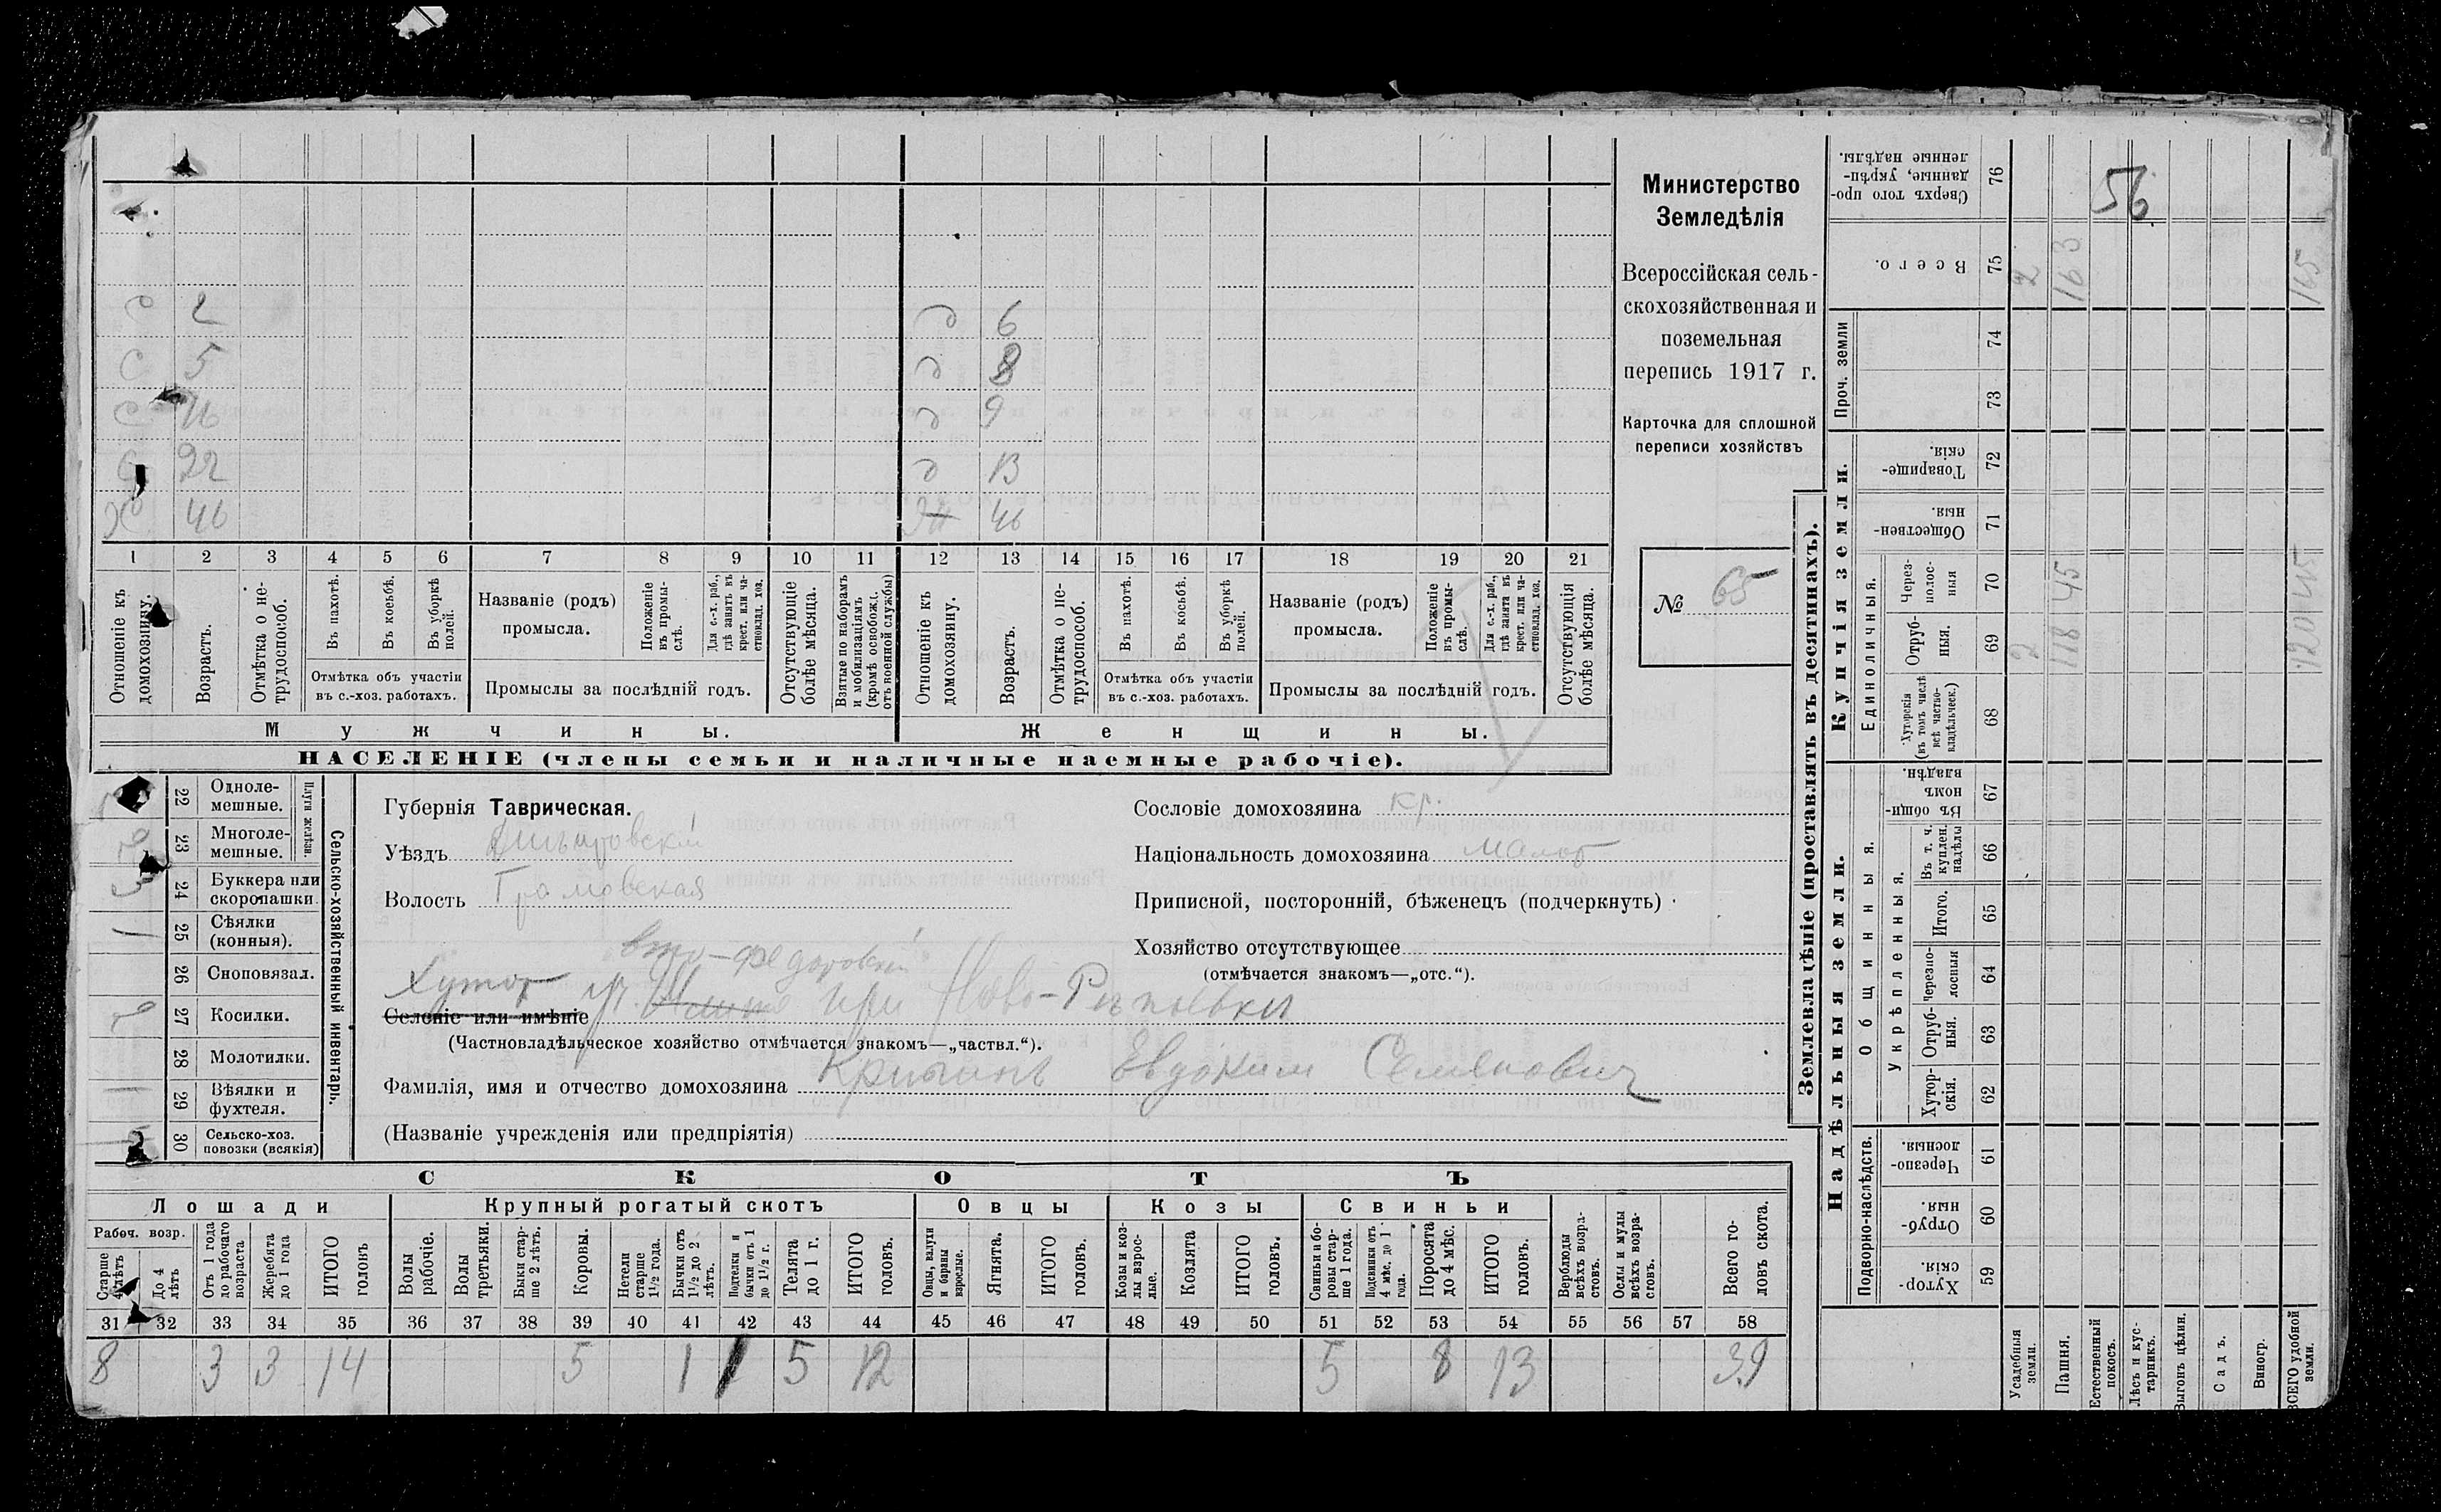 Министерство
Земледѣлія
Всероссійская сель-
скохозяйственная и
поземельная
перепись 1917 г.
Карточка для сплошной
переписи хозяйствъ
№ 65
С 2
С 5
С 16
С 22
Х 46
д 6
д 8
д 9
д 13
46
1 2 3 4 5 6 7 8 9 10 11 12 13 14 15 16 17 18 19 20 21
Отношеніе къ домохозяину.
Возрастъ.
Отмѣтка о не-трудоспособ.
Въ пахотѣ.
Въ косьбѣ.
Въ уборкѣ полей.
Отмѣтка объ участіи въ с.-хоз. работахъ.
Названіе (родъ) промысла.
Положеніе въ промы-слѣ.
Для с.-х. раб., гдѣ занятъ въ крест. или ча-стновлад. хоз.
Промыслы за послѣдній годъ.
Отсутствующіе болѣе мѣсяца.
Взятые по наборамъ и мобилизаціямъ (кромѣ освобожд. отъ военной службы)
Отношеніе къ домохозяину.
Возрастъ.
Отмѣтка о не-трудоспособ.
Въ пахотѣ.
Въ косьбѣ.
Въ уборкѣ полей.
Отмѣтка объ участіи въ с.-хоз. работахъ.
Названіе (родъ) промысла.
Положеніе въ промы-слѣ.
Для с.-х. раб., гдѣ занята въ крест. или ча-стновлад. хоз.
Промыслы за послѣдній годъ.
Отсутствующія болѣе мѣсяца.
Мужчины.
Женщины.
НАСЕЛЕНІЕ (члены семьи и наличные наемные рабочіе).
Сельско-хозяйственный инвентарь.
Плуги желѣзн.
22 Одноле-мешные.
23 Многоле-мешные.
24 Буккера или скоропашки
25 Сѣялки (конныя). 1
26 Сноповязал.
27 Косилки.
28 Молотилки.
29 Вѣялки и фухтеля.
30 Сельско-хоз. повозки (всякія)
Губернія Таврическая.
Уѣздъ
Волость
Хутор
при Ново-
Селеніе или имѣніе
(Частновладѣльческое хозяйство отмѣчается знакомъ—„частвл.“).
Фамилія, имя и отчество домохозяина Евдоким Семенович
(Названіе учрежденія или предпріятія)
Сословіе домохозяина кр.
Національность домохозяина малор
Приписной, посторонній, бѣженецъ (подчеркнуть)
Хозяйство отсутствующее
(отмѣчается знакомъ—„отс.“).
СКОТЪ
Лошади
Рабоч. возр.
Старше 4 лѣтъ
До 4 лѣтъ
Отъ 1 года до рабочаго возраста
Жеребята до 1 года
ИТОГО головъ
Крупный рогатый скотъ
Волы рабочіе.
Волы третьяки.
Быки стар-ше 2 лѣтъ.
Коровы.
Нетели старше 1½ года.
Бычки отъ 1½ до 2 лѣтъ.
Подтелки и бычки отъ 1 до 1½ г.
Телята до 1 г.
ИТОГО головъ.
Овцы
Овцы, валухи и бараны взрослые.
Ягнята.
ИТОГО головъ.
Козы
Козы и коз-лы взрос-лые.
Козлята
ИТОГО головъ.
Свиньи
Свиньи и бо-ровы стар-ше 1 года.
Подсвинки отъ 4 мѣс. до 1 года.
Поросята до 4 мѣс.
ИТОГО головъ.
Верблюды всѣхъ возра-стовъ.
Ослы и мулы всѣхъ возра-стовъ.
Всего го-ловъ скота.
31 32 33 34 35 36 37 38 39 40 41 42 43 44 45 46 47 48 49 50 51 52 53 54 55 56 57 58
8 3 3 14 5 1 1 5 12 5 8 13 39
Землевладѣніе (проставлять въ десятинахъ).
Надѣльныя земли.
Подворно-наслѣдств.
59 Хутор-скія.
60 Отруб-ныя.
61 Черезпо-лосныя.
Общинныя.
Укрѣпленныя.
62 Хутор-скія.
63 Отруб-ныя.
64 Черезпо-лосныя
65 Итого.
66 Въ т. ч. куплен. надѣлы
67 Въ общин-номъ владѣн.
Купчія земли.
Единоличныя.
68 Хуторскія (въ томъ числѣ всѣ частно-владѣльческ.)
69 Отруб-ныя. 2 118 120
70 Через-полос-ныя 45 45
71 Обществен-ныя.
72 Товарище-скія.
Проч. земли
73
74
75 Всего. 2 163 165
76 Сверхъ того про-данные, укрѣп-ленные надѣлы.
56
Усадебныя земли.
Пашня.
Естественный покосъ.
Лѣсъ и кус-тарникъ.
Выгонъ цѣлин.
Садъ.
Виногр.
ВСЕГО удобной земли.